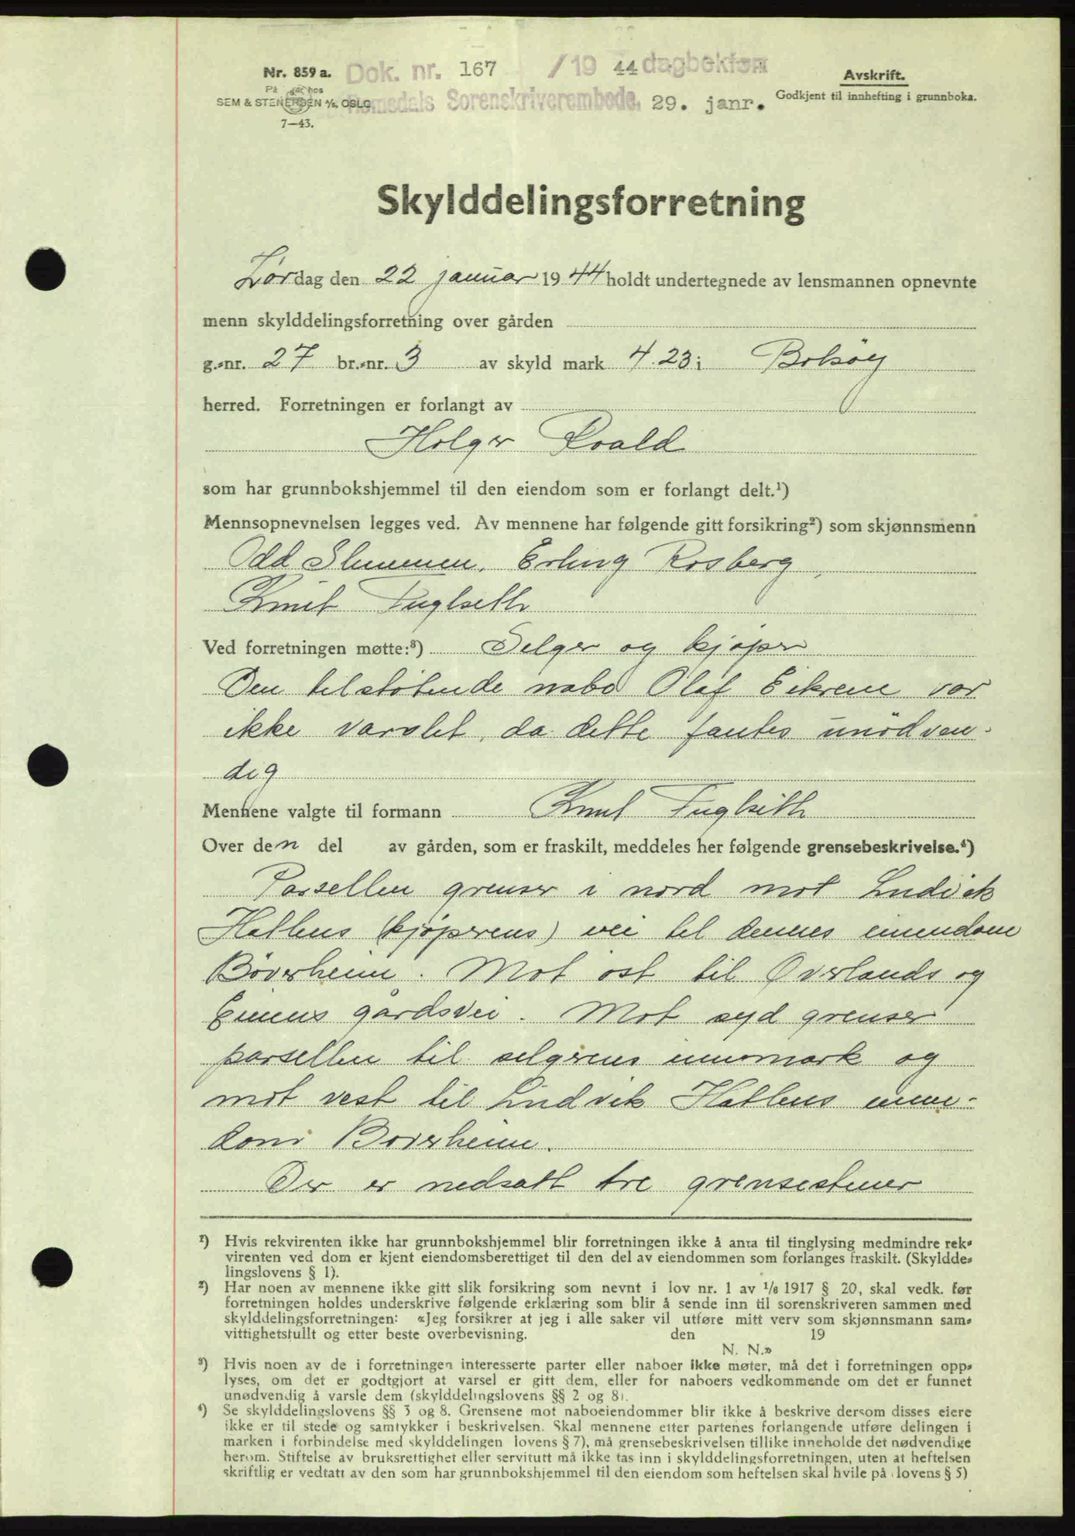 Nr. 859 a.
Dok. nr. 167 /19 44 dagbokten
Avskrift.
SEM & STENERSEN A/S. OSLO
Romsdals Sorenskriverembede. 29. janr.
Godkjent til innhefting i grunnboka.
7—43.
Skylddelingsforretning
Lørdag den 22 januar 1944 holdt undertegnede av lensmannen opnevnte
menn skylddelingsforretning over gården
g.-nr. 27 br.-nr. 3 av skyld mark 4.23 i Bolsøy
herred. Forretningen er forlangt av
Holger Roald
som har grunnbokshjemmel til den eiendom som er forlangt delt.¹)
Mennsopnevnelsen legges ved. Av mennene har følgende gitt forsikring²) som skjønnsmenn
Odd Slemmen, Erling Rosberg,
Knut Fuglseth
Ved forretningen møtte:³) Selger og kjøper
Den tilstøtende nabo Olaf Eikrem var
ikke varslet, da dette fantes unødven-
dig
Mennene valgte til formann Knut Fuglseth
Over den del av gården, som er fraskilt, meddeles her følgende grensebeskrivelse.⁴)
Parsellen grenser i nord mot Ludvik
Hatlens (kjøperens) vei til dennes eiendom
Bøverheim. Mot øst til Øverlands og
gårdsvei. Mot syd grenser
parsellen til selgerens innmark og
mot vest til Ludvik Hatlens eien-
dom Bøverheim.
Der er nedsatt tre grensestener
¹) Hvis rekvirenten ikke har grunnbokshjemmel blir forretningen ikke å anta til tinglysing medmindre rek-
virenten ved dom er kjent eiendomsberettiget til den del av eiendommen som forlanges fraskilt. (Skyldde-
lingslovens § 1).
²) Har noen av mennene ikke gitt slik forsikring som nevnt i lov nr. 1 av 1/6 1917 § 20, skal vedk. før
forretningen holdes underskrive følgende erklæring som blir å sende inn til sorenskriveren sammen med
skylddelingsforretningen: «Jeg forsikrer at jeg i alle saker vil utføre mitt verv som skjønnsmann sam-
vittighetsfullt og etter beste overbevisning. den 19
N. N.»
³) Hvis noen av de i forretningen interesserte parter eller naboer ikke møter, må det i forretningen opp-
lyses, om det er godtgjort at varsel er gitt dem, eller for naboers vedkommende om det er funnet
unødvendig å varsle dem (skylddelingslovens §§ 2 og 8).
⁴) Se skylddelingslovens §§ 3 og 8. Grensene mot naboeiendommer blir ikke å beskrive dersom disses eiere
ikke er til stede og samtykker i beskrivelsen. Skal mennene etter partenes forlangende utføre delingen i
marken i forbindelse med skylddelingen lovens § 7), må grensebeskrivelsen tillike inneholde det nødvendige
herom. Stiftelse av bruksrettighet eller servitutt må ikke tas inn i skylddelingsforretningen, uten at heftelsen
skriftlig er vedtatt av den som har grunnbokshjemmel til den eiendom som heftelsen skal hvile på lovens § 5)